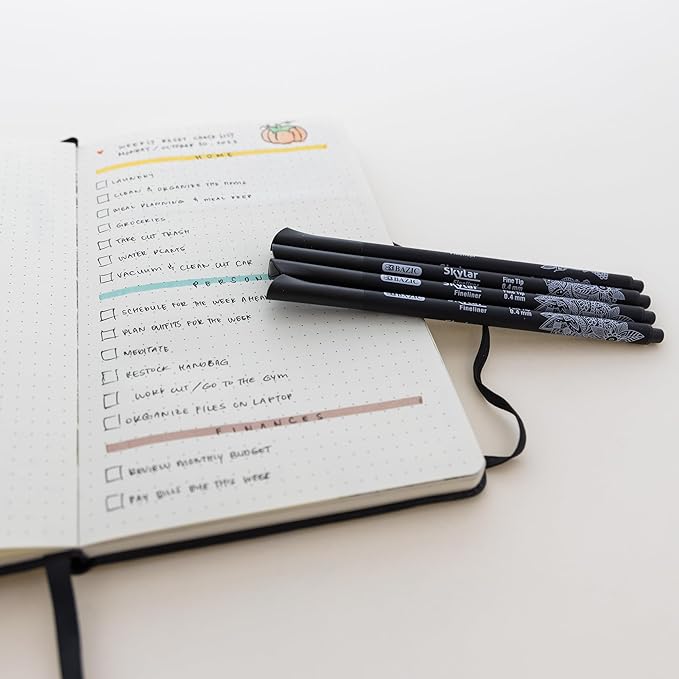 WEEKLY RESET CHECK LIST
MONDAY / OCTOBER 30, 2023
HOME
LAUNDRY
CLEAN & ORGANIZE THE HOME
MEAL PLANNING & MEAL PREP
GROCERIES
TAKE OUT TRASH
WATER PLANTS
VACUUM & CLEAN OUT CAR
PERSON
SCHEDULE FOR THE WEEK AHEAD
PLAN OUTFITS FOR THE WEEK
MEDITATE
RESTOCK HANDBAG
WORK OUT / GO TO THE GYM
ORGANIZE FILES ON LAPTOP
FINANCES
REVIEW MONTHLY BUDGET
PAY BILLS DUE THIS WEEK
BAZIC Skylar Fine Tip
0.4 mm
BAZIC Fineliner 0.4 mm
Fineliner 0.4 mm